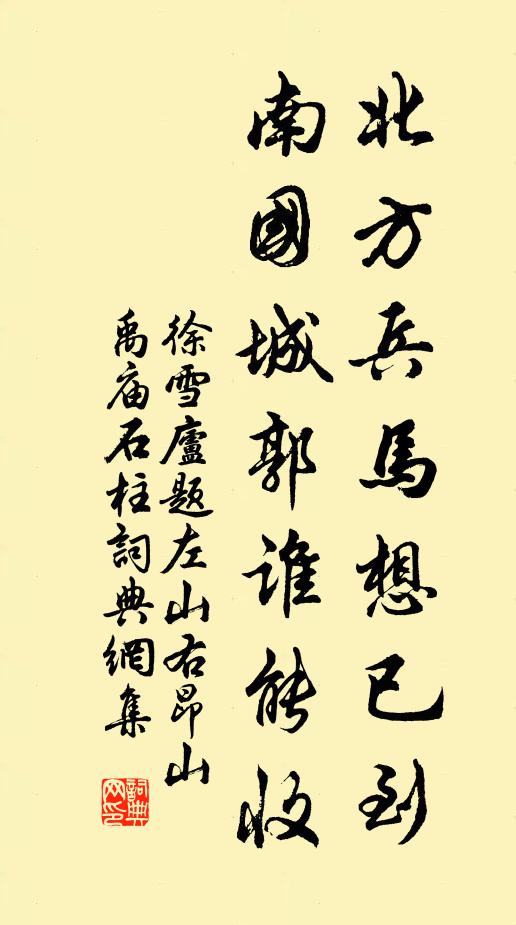 北方兵馬想已到
南國城郭誰能收
徐雪廬題左山右昂山
禹庙石柱詞典網集
詞典網印